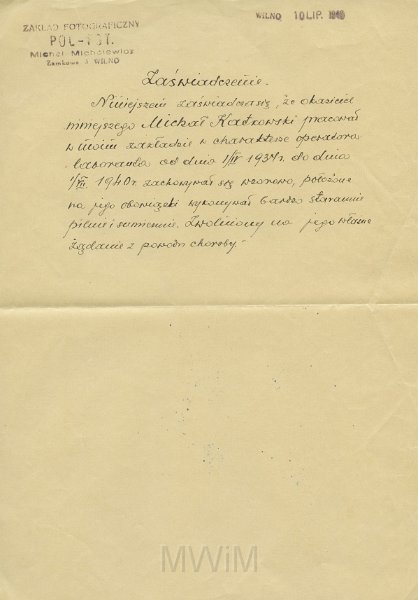 ZAKŁAD FOTOGRAFICZNY
POL-FOT.
Michał Michalewicz
Zamkowa 3 WILNO
WILNO 10 LIP. 1940
Zaświadczenie.
Niniejszem zaświadczam, że okaziciel
niniejszego Michał Katkowski pracował
w moim zakładzie w charakterze operatora
laboranta od dnia 1/IV 1937 r. do dnia
1/VII. 1940 r. zachowywał się wzorowo, położone
na jego obowiązki wykonywał bardzo starannie
pilnie i sumiennie. Zwolniony na jego własne
żądanie z powodu choroby
MWiM